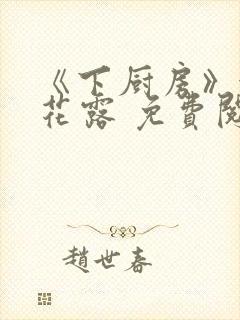 《下厨房》
花露 免費閱
趙世春